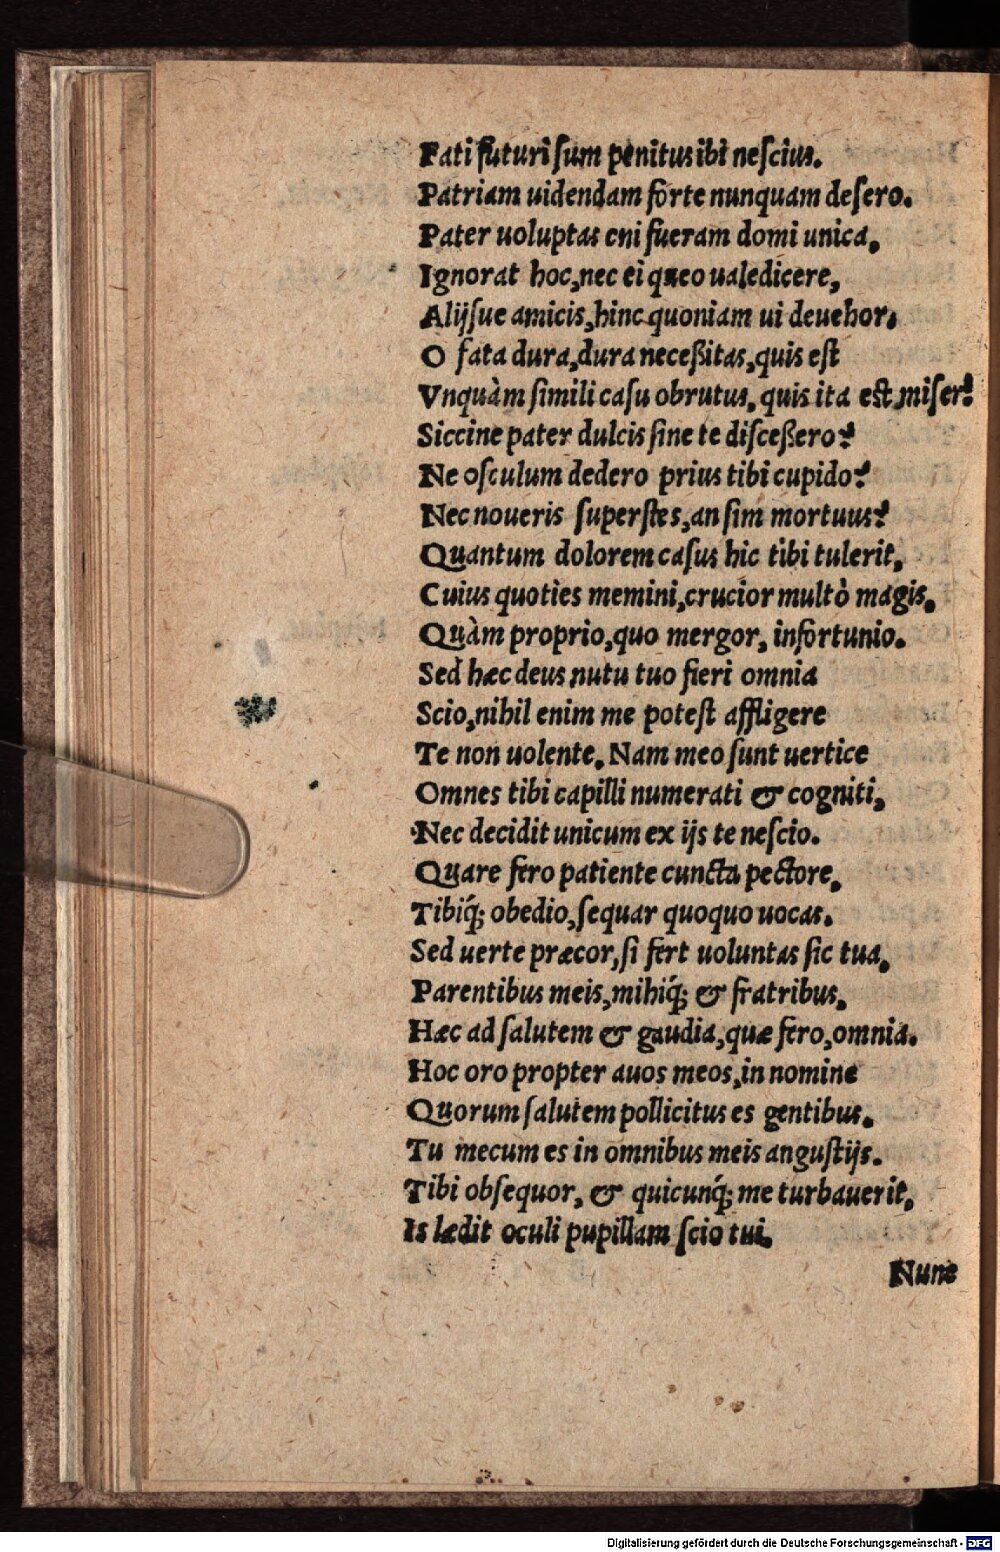 Fati futuri ſum penitus ibi neſcius.
Patriam uidendam forte nunquam deſero.
Pater uoluptas cni fueram domi unica,
Ignorat hoc,nec ei queo ualedicere,
Alijſue amicis,hinc quoniam ui deuehor,
O fata dura,dura neceßitas,quis eſt
Vnquàm ſimili caſu obrutus, quis ita est miſer?
Siccine pater dulcis ſine te diſceßero?
Ne oſculum dedero prius tibi cupido?
Nec noueris ſuperſtes,an ſim mortuus?
Quantum dolorem caſus hic tibi tulerit,
Cuius quoties memini,crucior multò magis,
Quàm proprio,quo mergor, infortunio.
Sed hæc deus nutu tuo fieri omnia
Scio,nihil enim me poteſt affligere
Te non uolente, Nam meo ſunt uertice
Omnes tibi capilli numerati & cogniti,
Nec decidit unicum ex ijs te neſcio.
Quare fero patiente cuncta pectore,
Tibiq́; obedio,ſequar quoquo uocas.
Sed uerte præcor,ſi fert uoluntas ſic tua,
Parentibus meis,mihiq́; & fratribus,
Hæc ad ſalutem & gaudia,quæ fero,omnia.
Hoc oro propter auos meos,in nomine
Quorum ſalutem pollicitus es gentibus,
Tu mecum es in omnibus meis anguſtijs.
Tibi obſequor, & quicunq́; me turbauerit,
Is lædit oculi pupillam ſcio tui,
Nunc
Digitalisierung gefördert durch die Deutsche Forschungsgemeinschaft - DFG